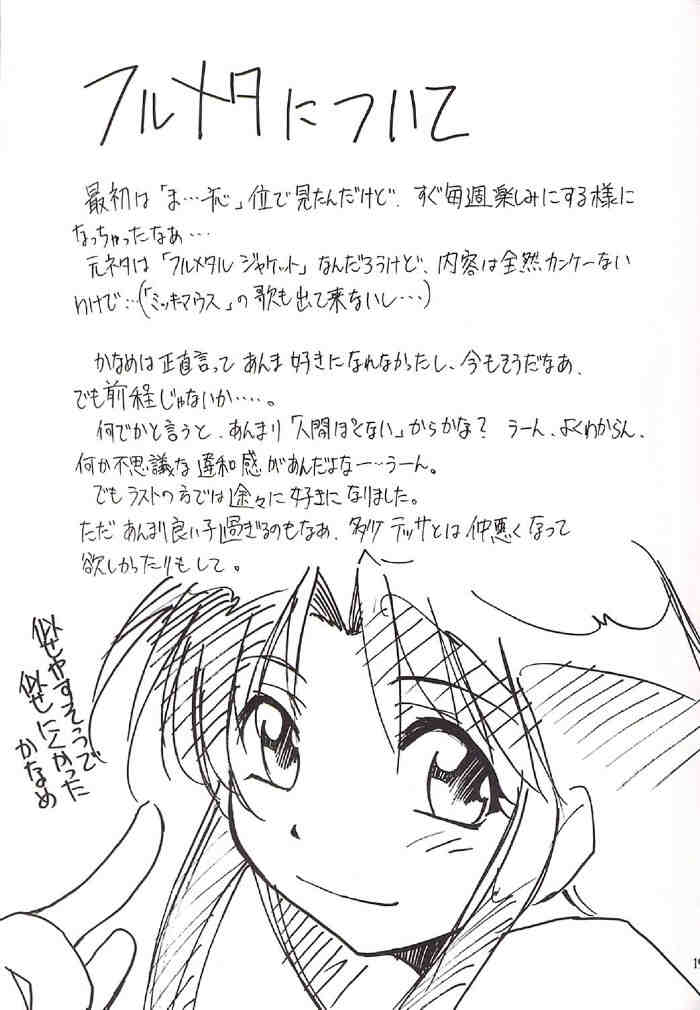 フルメタについて
最初は「ま…」位で見たんだけど、すぐ毎週楽しみにする様に
なっちゃったなあ…
元ネタは「フルメタル ジャケット」なんだろうけど、内容は全然カンケーない
わけで…(「ミッキマウス」の歌も出て来ないし…)
かなめは正直言って あんま 好きになれなかったし、今もそうだなあ、
でも前程じゃないか‥‥。
何でかと言うと、あんまり「人間ぽくない」からかな? うーん、よくわからん、
何か不思議な 違和感があんだよなー…うーん。
でも ラストの方では 途々に 好きになりました。
ただ あんまり良い子過ぎるのもなあ、 テッサとは 仲悪くなって
欲しかったりもして。
似せやすそうで
似せにくかった
かなめ